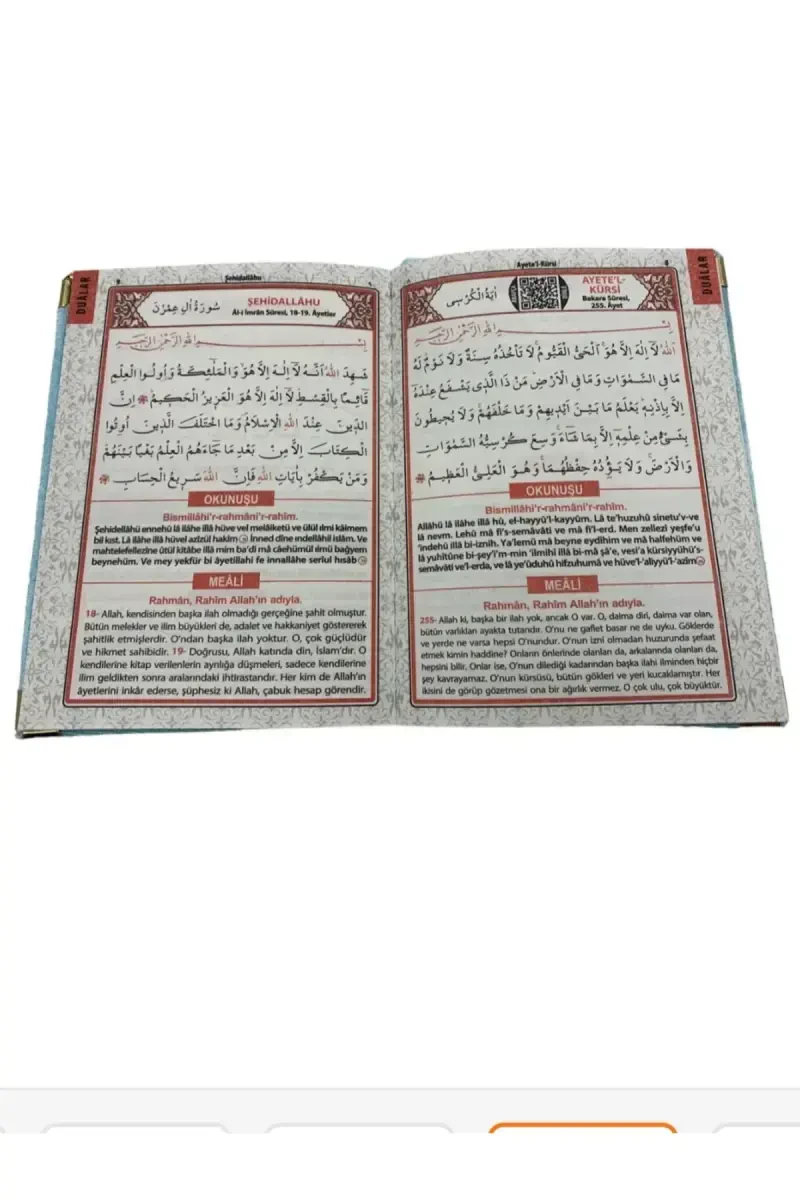 DUÂLAR
9
Şehidallâhu
سُورَةُ اٰلِ عِمْرٰنَ
ŞEHİDALLÂHU
Âl-i İmrân Sûresi, 18-19. Âyetler
بِسْمِ اللهِ الرَّحْمٰنِ الرَّحِيمِ
شَهِدَ اللهُ اَنَّهُ لَٓا اِلٰهَ اِلَّا هُوَ وَالْمَلٰٓئِكَةُ وَاُو۬لُوا الْعِلْمِ
قَٓائِمًا بِالْقِسْطِ لَٓا اِلٰهَ اِلَّا هُوَ الْعَزِيزُ الْحَكِيمُ اِنَّ
الدِّينَ عِنْدَ اللهِ الْاِسْلَامُ وَمَا اخْتَلَفَ الَّذِينَ اُو۫تُوا
الْكِتَابَ اِلَّا مِنْ بَعْدِ مَا جَٓاءَهُمُ الْعِلْمُ بَغْيًا بَيْنَهُمْ
وَمَنْ يَكْفُرْ بِاٰيَاتِ اللهِ فَاِنَّ اللهَ سَرِيعُ الْحِسَابِ
OKUNUŞU
Bismillâhi'r-rahmâni'r-rahîm.
Şehidellâhü ennehû lâ ilâhe illâ hüve vel melâiketü ve ûlül ilmi kâimem
bil kıst. Lâ ilâhe illâ hüvel azîzül hakîm 18 İnned dîne ındellâhil islâm. Ve
mahtelefellezîne ûtül kitâbe illâ mim ba'di mâ câehümül ılmü bağyem
beynehüm. Ve mey yekfür bi âyetillahi fe innallahe serîul hısâb 19
MEÂLİ
Rahmân, Rahîm Allah'ın adıyla.
18- Allah, kendisinden başka ilah olmadığı gerçeğine şahit olmuştur.
Bütün melekler ve ilim büyükleri de, adalet ve hakkaniyet göstererek
şahitlik etmişlerdir. O'ndan başka ilah yoktur. O, çok güçlüdür
ve hikmet sahibidir. 19- Doğrusu, Allah katında din, İslam'dır. O
kendilerine kitap verilenlerin ayrılığa düşmeleri, sadece kendilerine
ilim geldikten sonra aralarındaki ihtirastandır. Her kim de Allah'ın
âyetlerini inkâr ederse, şüphesiz ki Allah, çabuk hesap görendir.
Ayete'l-Kürsi
DUÂLAR
اٰيَةُ الْكُرْسِى
AYETE'L-
KÜRSÎ
Bakara Sûresi,
255. Âyet
بِسْمِ اللهِ الرَّحْمٰنِ الرَّحِيمِ
اَللهُ لَٓا اِلٰهَ اِلَّا هُوَ اَلْحَيُّ الْقَيُّومُ لَا تَأْخُذُهُ سِنَةٌ وَلَا نَوْمٌ لَهُ
مَا فِى السَّمٰوَاتِ وَمَا فِى الْاَرْضِ مَنْ ذَا الَّذِى يَشْفَعُ عِنْدَهُٓ
اِلَّا بِاِذْنِهِ يَعْلَمُ مَا بَيْنَ اَيْدِيهِمْ وَمَا خَلْفَهُمْ وَلَا يُحِيطُونَ
بِشَىْءٍ مِنْ عِلْمِهِٓ اِلَّا بِمَا شَٓاءَ وَسِعَ كُرْسِيُّهُ السَّمٰوَاتِ
وَالْاَرْضَ وَلَا يَؤُدُهُ حِفْظُهُمَا وَهُوَ الْعَلِىُّ الْعَظِيمُ
OKUNUŞU
Bismillâhi'r-rahmâni'r-rahîm.
Allâhü lâ ilâhe illâ hû, el-hayyü'l-kayyûm. Lâ te'huzuhû sinetu'v-ve
lâ nevm. Lehû mâ fi's-semâvâti ve mâ fi'l-erd. Men zellezî yeşfe'u
'indehû illâ bi-iznih. Ya'lemü mâ beyne eydîhim ve mâ halfehüm ve
lâ yuhîtûne bi-şey'i'm-min 'ilmihî illâ bi-mâ şâ'e, vesi'a kürsiyyühü's-
semâvâti ve'l-erda, ve lâ ye'ûduhû hıfzuhumâ ve hüve'l-'aliyyü'l-'azîm
MEÂLİ
Rahmân, Rahîm Allah'ın adıyla.
255- Allah ki, başka bir ilah yok, ancak O var. O, daima diri, daima var olan,
bütün varlıkları ayakta tutandır. O'nu ne gaflet basar ne de uyku. Göklerde
ve yerde ne varsa hepsi O'nundur. O'nun izni olmadan huzurunda şefaat
etmek kimin haddine? Onların önlerinde olanları da, arkalarında olanları da,
hepsini bilir. Onlar ise, O'nun dilediği kadarından başka ilahi ilminden hiçbir
şey kavrayamaz. O'nun kürsüsü, bütün gökleri ve yeri kucaklamıştır. Her
ikisini de görüp gözetmesi ona bir ağırlık vermez. O çok ulu, çok büyüktür.